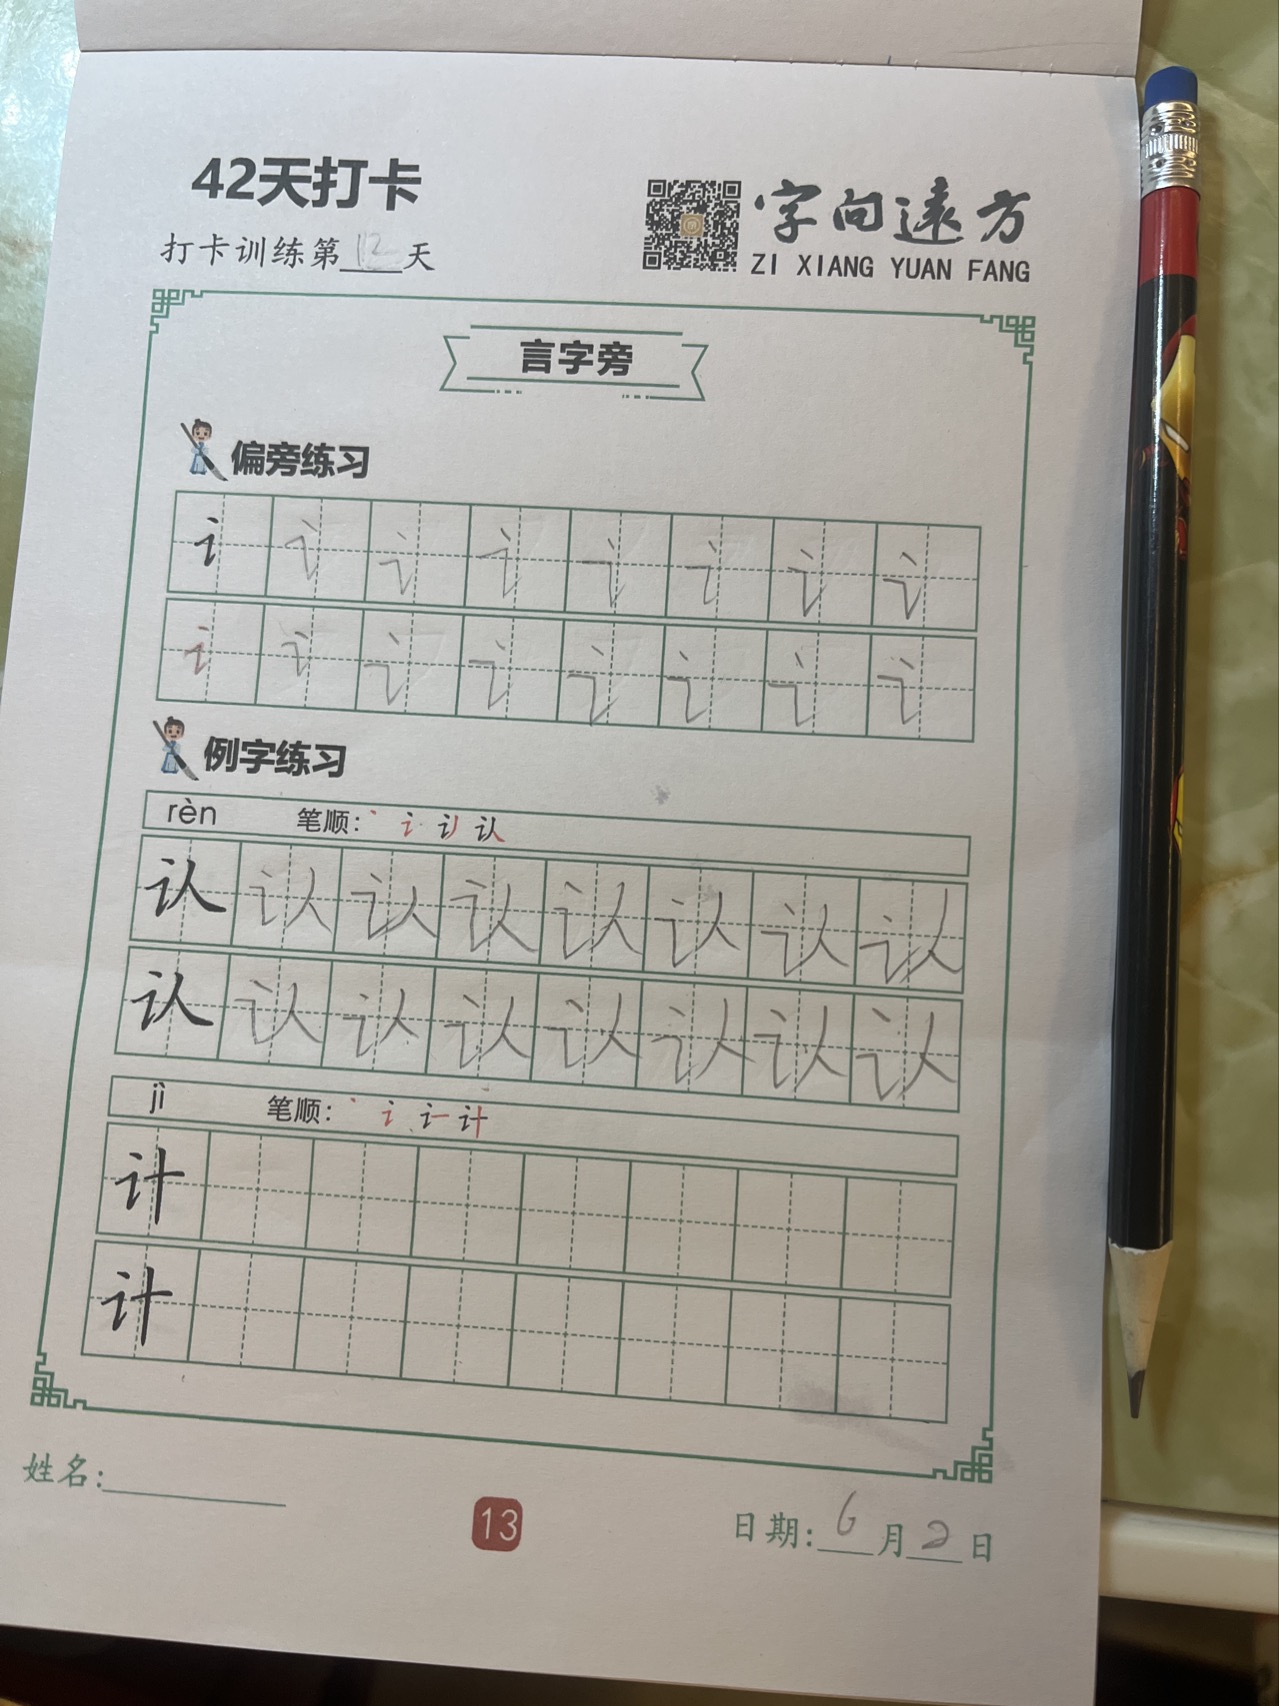 42天打卡
打卡训练第12天
字向遠方
ZI XIANG YUAN FANG
言字旁
偏旁练习
讠 讠 讠 讠 讠 讠 讠 讠
讠 讠 讠 讠 讠 讠 讠 讠
例字练习
rèn 笔顺: 丶 讠 认 认
认 认 认 认 认 认 认 认
认 认 认 认 认 认 认 认
jì 笔顺: 丶 讠 计 计
计
计
姓名:
13
日期: 6月2日